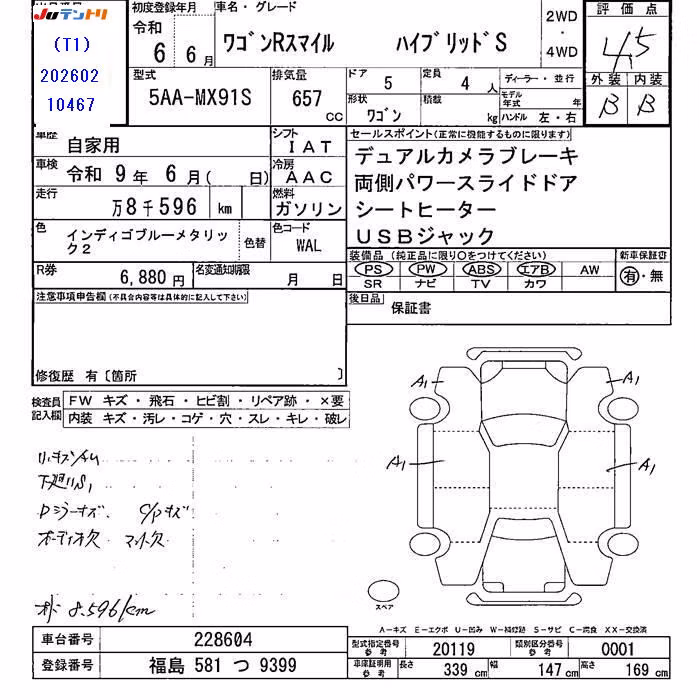 JUテントリ
(T1)
202602
10467
初度登録年月
車名・グレード
令和
6 6月
ワゴンRスマイル ハイブリッドS
2WD
・
4WD
評価点
4.5
外装 内装
B B
型式
5AA-MX91S
排気量
657
CC
ドア 5
定員 4人
形状 ワゴン
積載 kg
ディーラー・並行
モデル年式 年
ハンドル 左・右
車歴
自家用
シフト
IAT
車検
令和 9年 6月( 日)
冷房
AAC
走行
万8千596 km
燃料
ガソリン
色
インディゴブルーメタリック2
色替
色コード
WAL
R券
6,880円
名変通知期限
月 日
セールスポイント(正常に機能するものに限ります)
デュアルカメラブレーキ
両側パワースライドドア
シートヒーター
USBジャック
装備品(純正品に限り○をつけてください)
新車保証書
PS PW ABS エアB AW
SR ナビ TV カワ
有・無
後日品
保証書
注意事項申告欄(不具合内容等は具体的に記入して下さい)
修復歴 有〔箇所 〕
検査員記入欄
FW キズ・飛石・ヒビ割・リペア跡・×要
内装 キズ・汚レ・コゲ・穴・スレ・キレ・破レ
A1 A1
A1 A1
下廻りS1
Dミラーキズ C/Pキズ
オーディオ欠 マット欠
8.596km
スペア
A-キズ E-エクボ U-凹み W-補修跡 S-サビ C-腐食 XX-交換済
車台番号
228604
登録番号
福島 581 つ 9399
型式指定番号 参考
20119
類別区分番号 参考
0001
車庫証明用 参考
長さ 339cm
幅 147cm
高さ 169cm